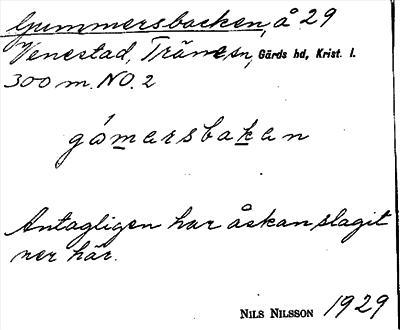 Gummersbacken, å 29
Venestad, Träne sn, Gärds hd, Krist. l.
300 m. NO. 2
gómarsbakan
Antagligen har åskan slagit
ner här.
NILS NILSSON 1929